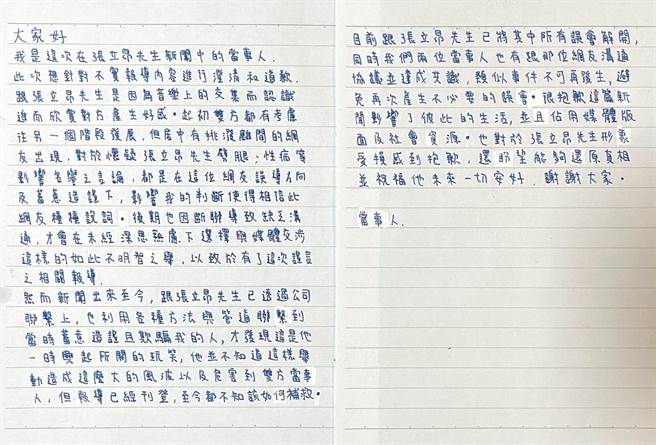 大家好
我是這次在張立昂先生新聞中的當事人.
此次想針對不實報導內容進行澄清和道歉.
跟張立昂先生是因為音樂上的交集而認識
進而欣賞對方產生好感。起初雙方都有考慮
往另一個階段發展,但居中有挑撥離間的網
友出現,對於懷疑張立昂先生劈腿;性病等
影響名譽之言論,都是在這位網友誤導方向
及蓄意造謠下,影響我的判斷使得相信此
網友種種說詞。後期也因斷聯導致缺乏溝
通,才會在未經深思熟慮下選擇與媒體交涉
這樣的如此不明智之舉,以致於有了這次謠言
之相關報導.
然而新聞出來至今,跟張立昂先生已透過公司
聯繫上,也利用各種方法與管道聯繫到
當時蓄意造謠且欺騙我的人,才發現這是他
一時興起所開的玩笑,他並不知道這樣舉
動造成這麼大的風波以及危害到雙方當事
人,但報導已經刊登,至今都不知該如何補救。
目前跟張立昂先生已將其中所有誤會解開,
同時我們兩位當事人也有跟那位網友溝通
協議並達成共識,類似事件不可再發生,避
免再次產生不必要的誤會。很抱歉這篇新
聞影響了彼此的生活,並且佔用媒體版
面及社會資源。也對於張立昂先生形象
受損感到抱歉,還盼望能夠還原真相
並祝福他未來一切安好.謝謝大家。
當事人.